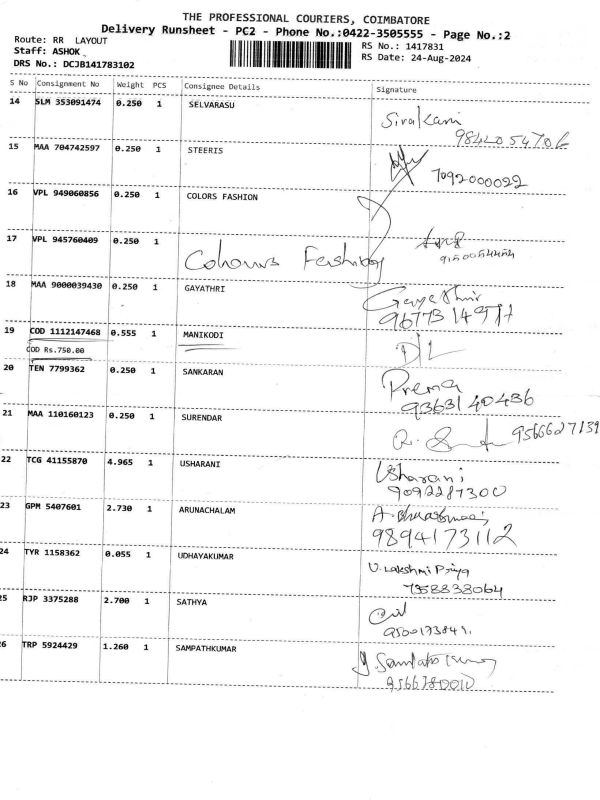 THE PROFESSIONAL COURIERS, COIMBATORE
Delivery Runsheet - PC2 - Phone No.:0422-3505555 - Page No.:2
Route: RR LAYOUT
Staff: ASHOK
DRS No.: DCJB141783102
RS No.: 1417831
RS Date: 24-Aug-2024
S No Consignment No Weight PCS Consignee Details Signature
14 SLM 353091474 0.250 1 SELVARASU
Sivakami
15 MAA 704742597 0.250 1 STEERIS
7092000022
16 VPL 949060856 0.250 1 COLORS FASHION
17 VPL 945760409 0.250 1
Colours Fashion
18 MAA 9000039430 0.250 1 GAYATHRI
Gayathri
19 COD 1112147468 0.555 1 MANIKODI
COD Rs.750.00
D/L
20 TEN 7799362 0.250 1 SANKARAN
Prema
9363140436
21 MAA 110160123 0.250 1 SURENDAR
9566627139
22 TCG 41155870 4.965 1 USHARANI
Usharani
9092287300
23 GPM 5407601 2.730 1 ARUNACHALAM
9894173112
24 TYR 1158362 0.055 1 UDHAYAKUMAR
U. Lakshmi Priya
7358838064
25 RJP 3375288 2.700 1 SATHYA
26 TRP 5924429 1.260 1 SAMPATHKUMAR
9566780010